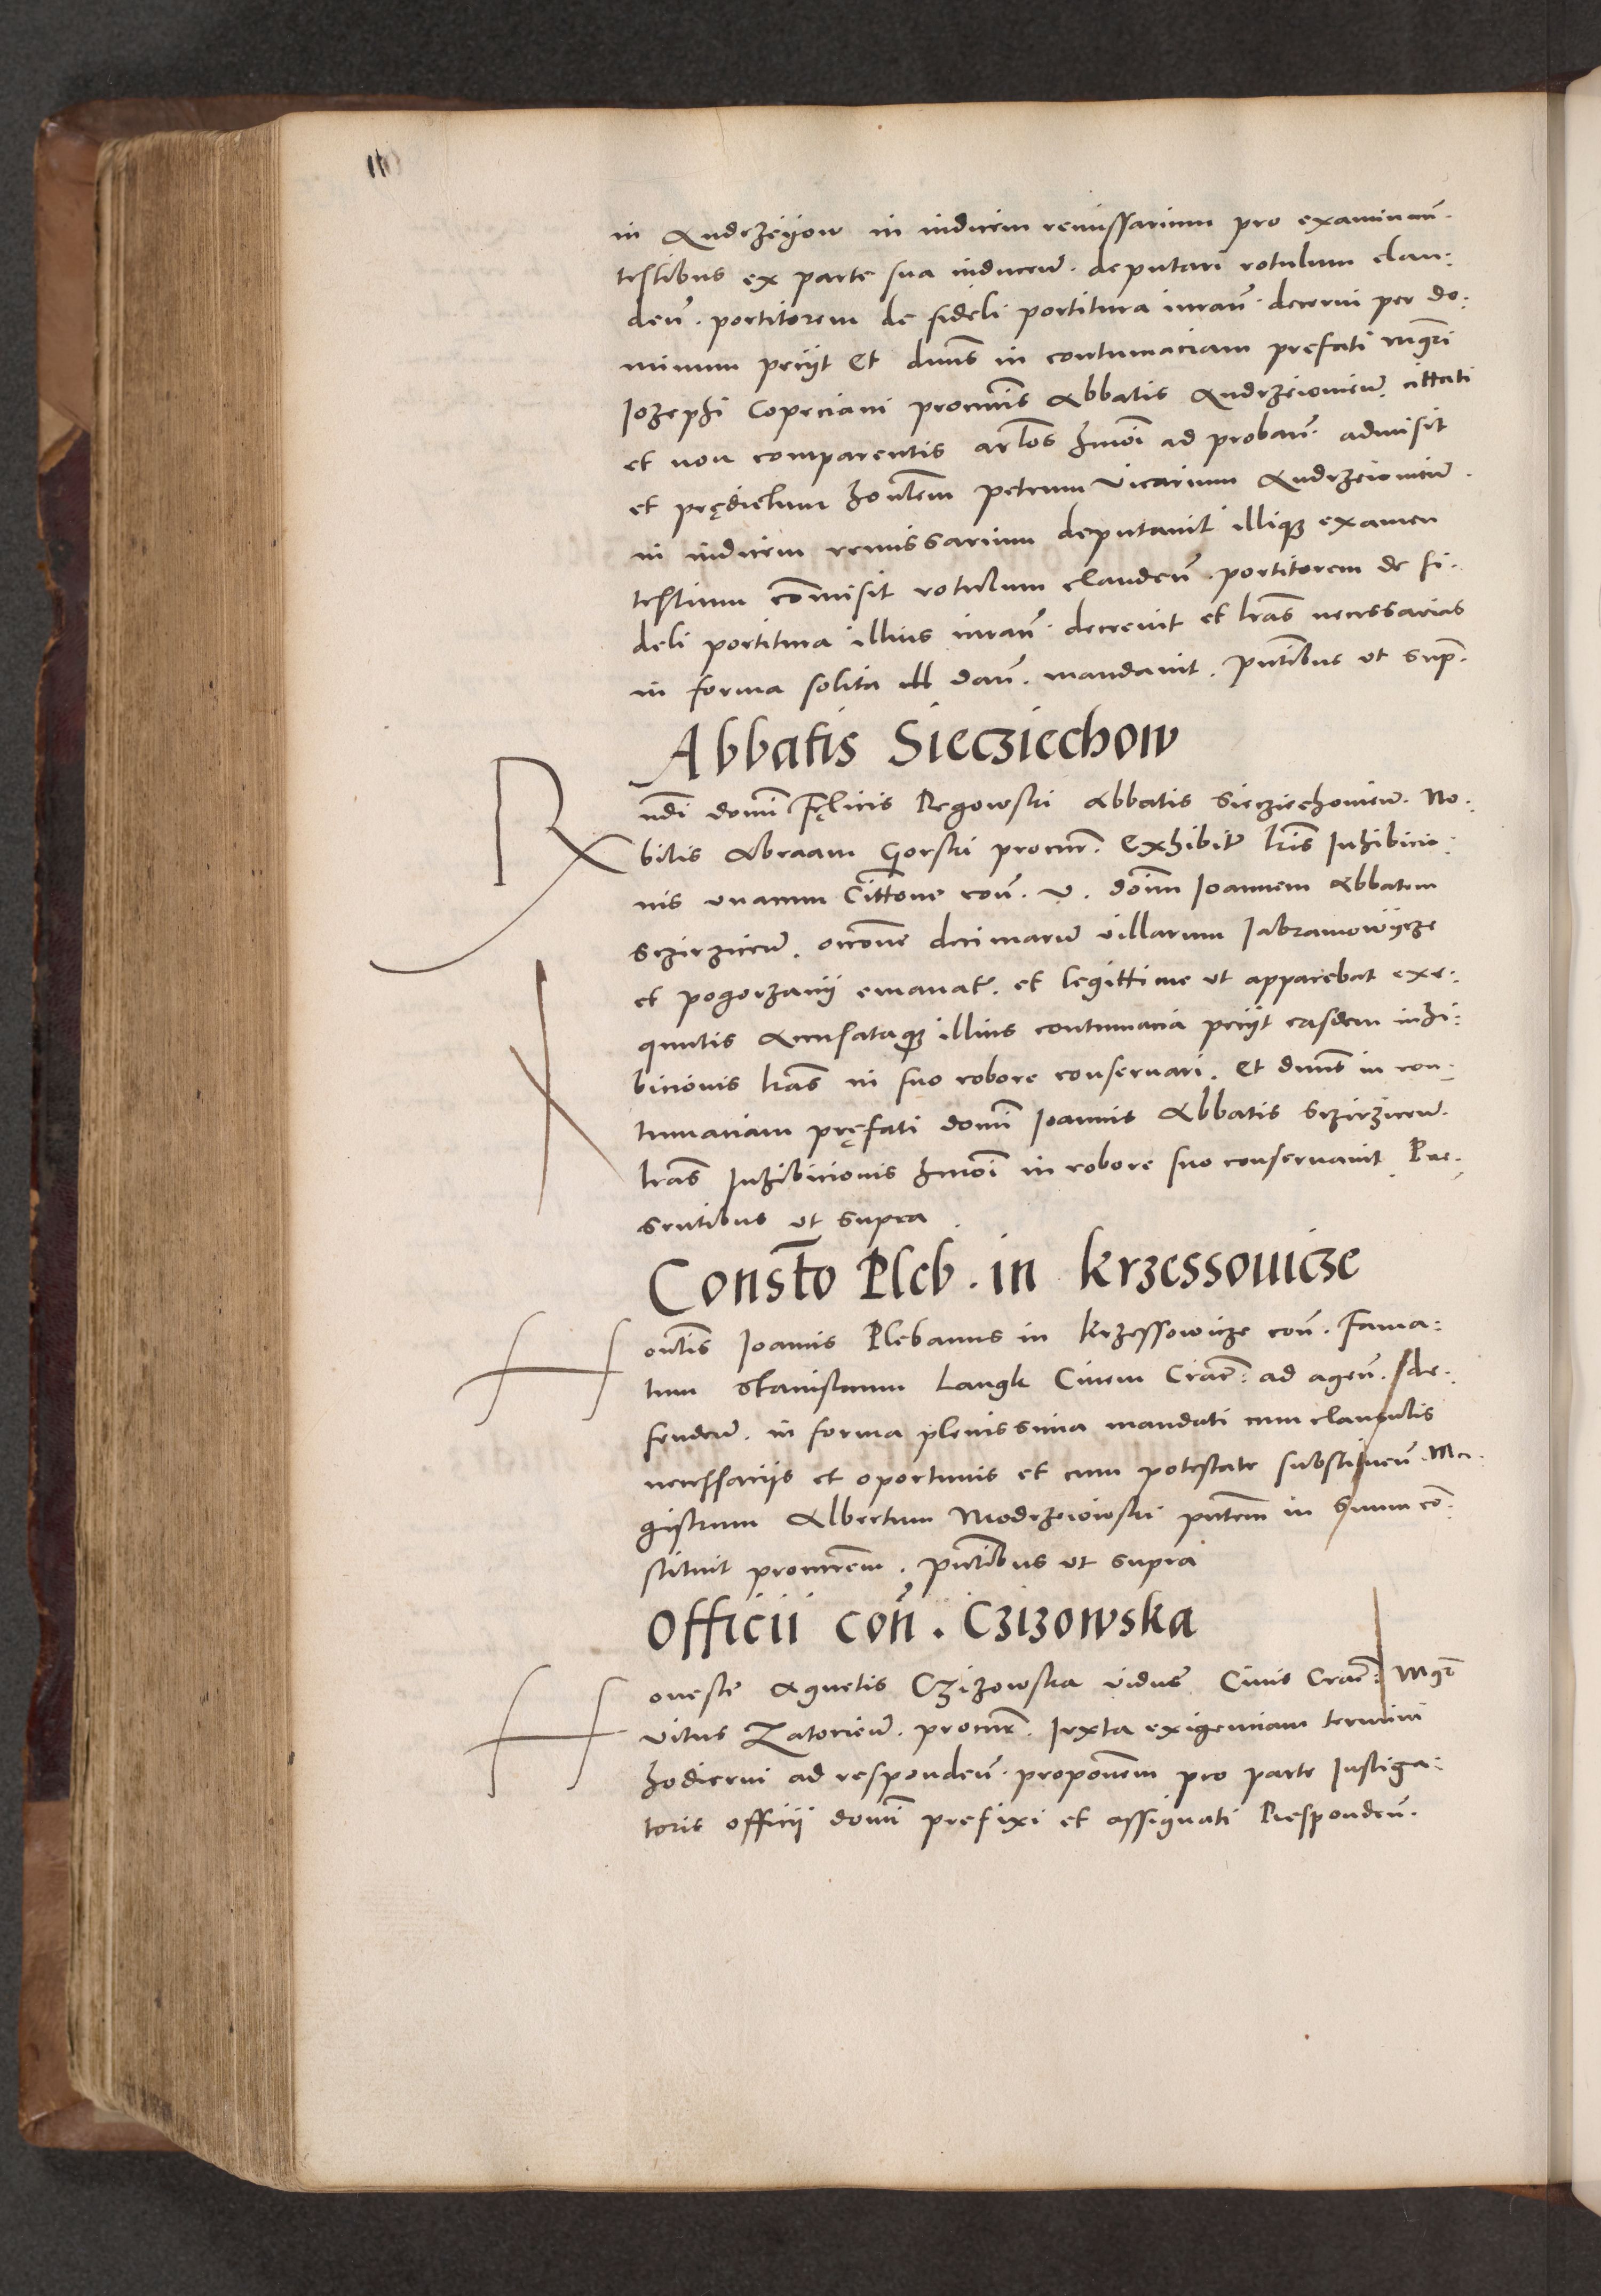 110
in Andrzeijow in iudicem remissarium pro examinan̄.
testibus ex parte sua inducen̄. deputari rotulum clau:
den̄. portitorem de fideli portitura iuran̄. decerni per do:
minum petijt Et dnus in contumaciam prefati mgri
Iozephi Copeciani procuris Abbatis Andrzeiovien̄. cittati
et non comparentis artlos hmoi ad proban̄. admisit
et prędictum honlem Petrum vicarium Andrzeiovien̄.
in iudicem remissarium deputavit illiq3 examen
testium com̄isit rotulum clauden̄. portitorem de fi:
deli portitura illius iuran̄. decrevit et lras necessarias
in forma solita dan̄. mandavit. pntibus ut supr.
Abbatis Siecziechow
Rndi domi Fęlicis Regowski Abbatis Siecziechovien̄. No:
bilis Abraam Gorski procur. Exhibit lris Inhibicio:
nis unacum Cittone con̄. v. domi Ioannem Abbatem
Sczirzicen̄. occone decimarum villarum Iabramowijcze
et Pogorzanij emanat. et legittime ut apparebat exe:
quutis Accusataq3 illius contumacia petijt easdem inhi:
bicionis lras in suo robore conservari. Et dnus in con:
tumaciam pręfati domi Ioannis Abbatis Sczirzicen̄.
lras Inhibicionis hmoi in robore suo conservavit. Prae:
sentibus ut supra.
Consto Pleb. in Krzessowicze
Honlis Ioannis Plebanus in Krzessowicze con̄. Fama:
tum Stanislaum Langk Civem Crac: ad agen̄. de:
fenden̄. in forma plenissima mandati cum clausulis
necessarijs et oportunis et cum potestate substituen̄. Ma:
gistrum Albertum Modrzewiowski pntem in suum cō:
stituit procurem. Pntibus ut supra
Officii con̄. Czizowska
Honeste Agnetis Czizowska vidue Civis Crac: Mgr
Vitus Zatorien̄. procur. Iuxta exigenciam termini
hodierni ad responden̄. proponem pro parte Instiga:
toris officij domi prefixi et assignati Responden̄.